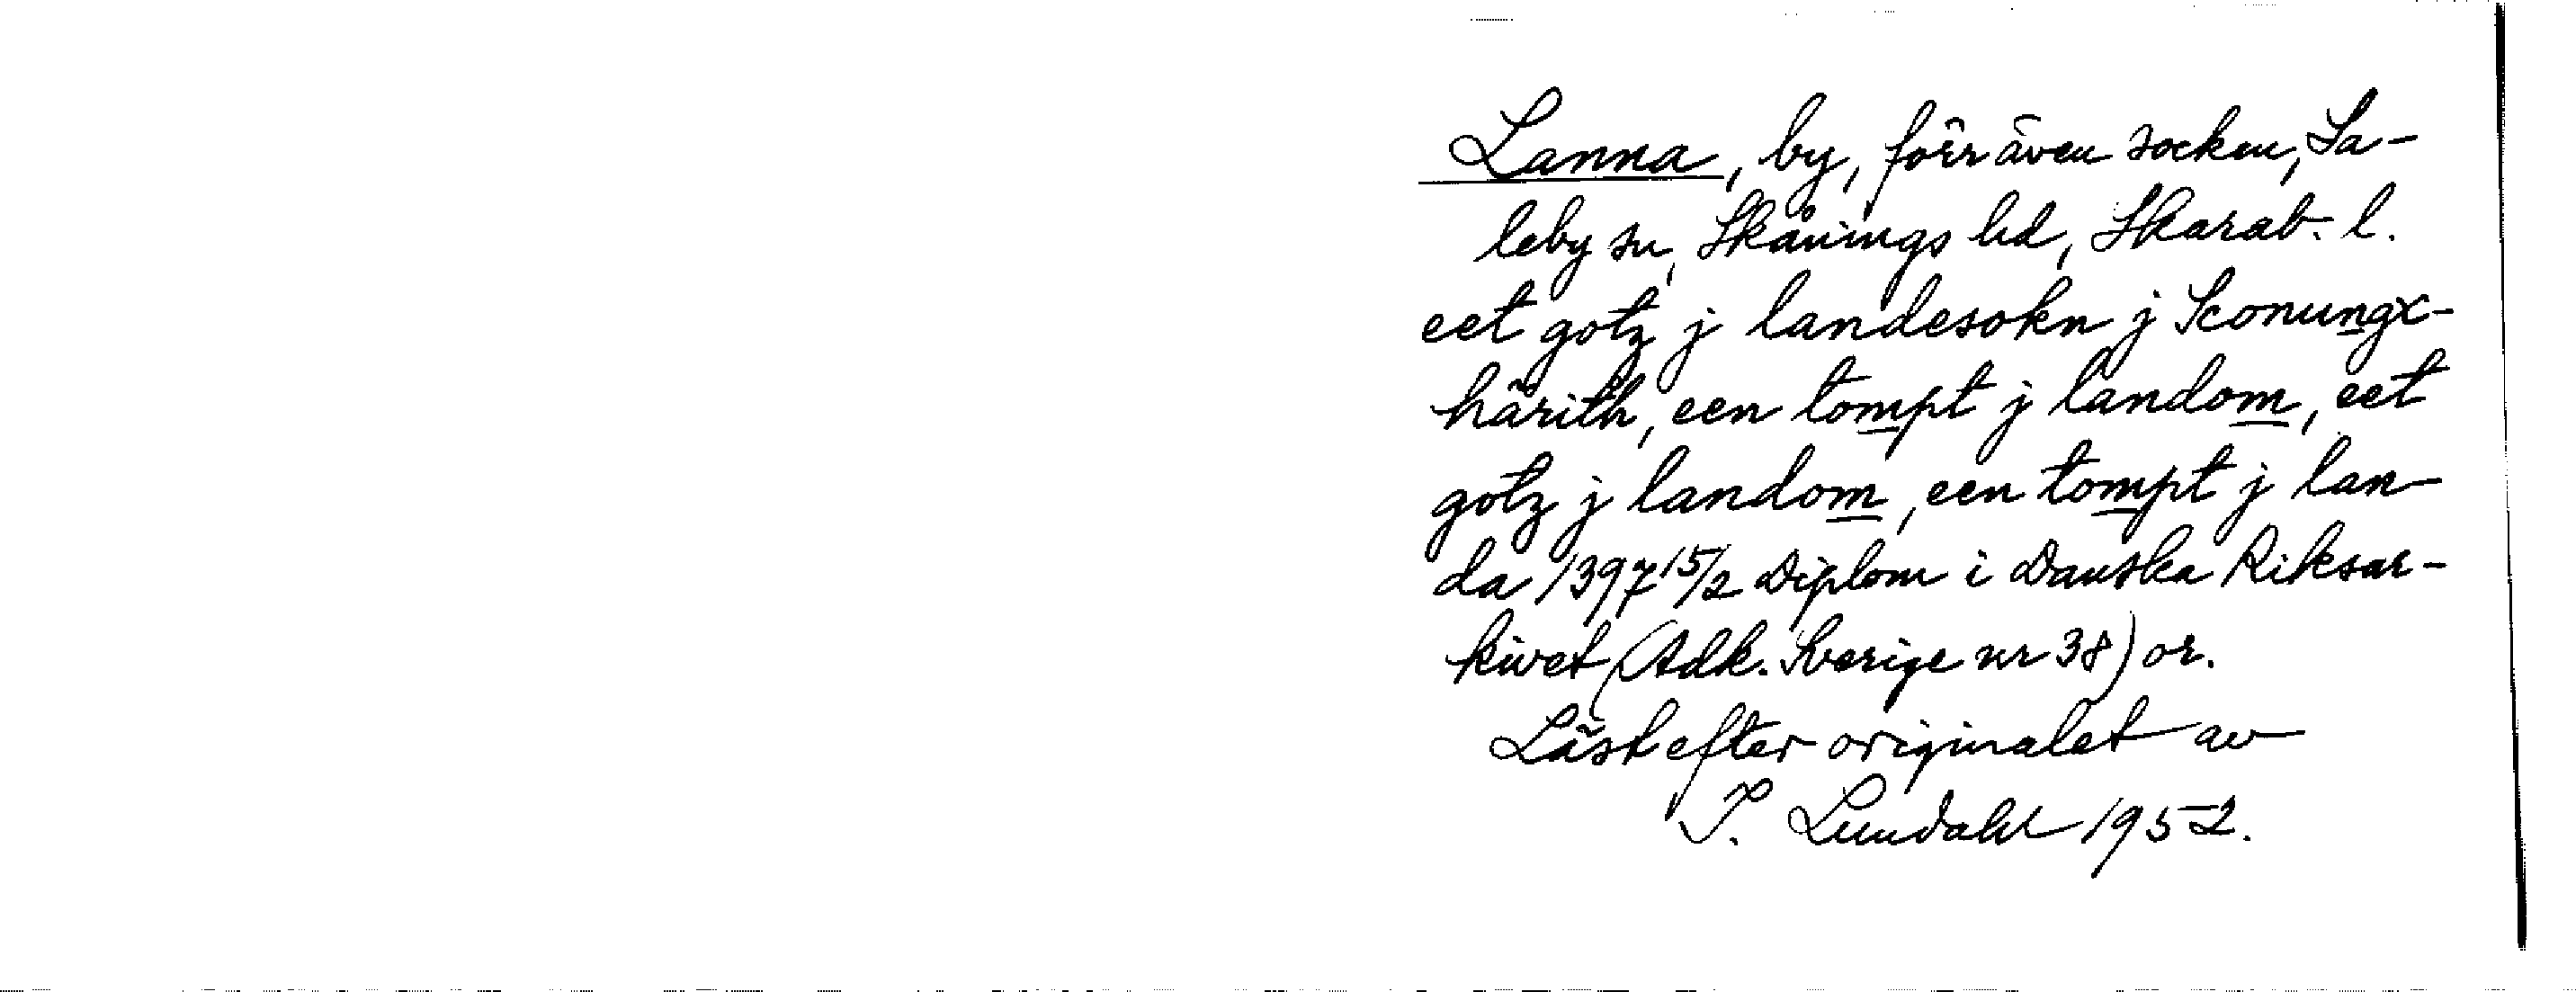 Lanna, by, förr även socken, Sa-
leby sn, Skånings hd, Skarab. l.
eet gotz j landesokn j Sconungx-
härith, een tompt j landom, eet
gotz j landom, een tompt j lan-
da 1397 15/2 Diplom i Danska Riksar-
kivet (Adk. Sverige nr 38) or.
Läst efter originalet av
I. Lundahl 1952.